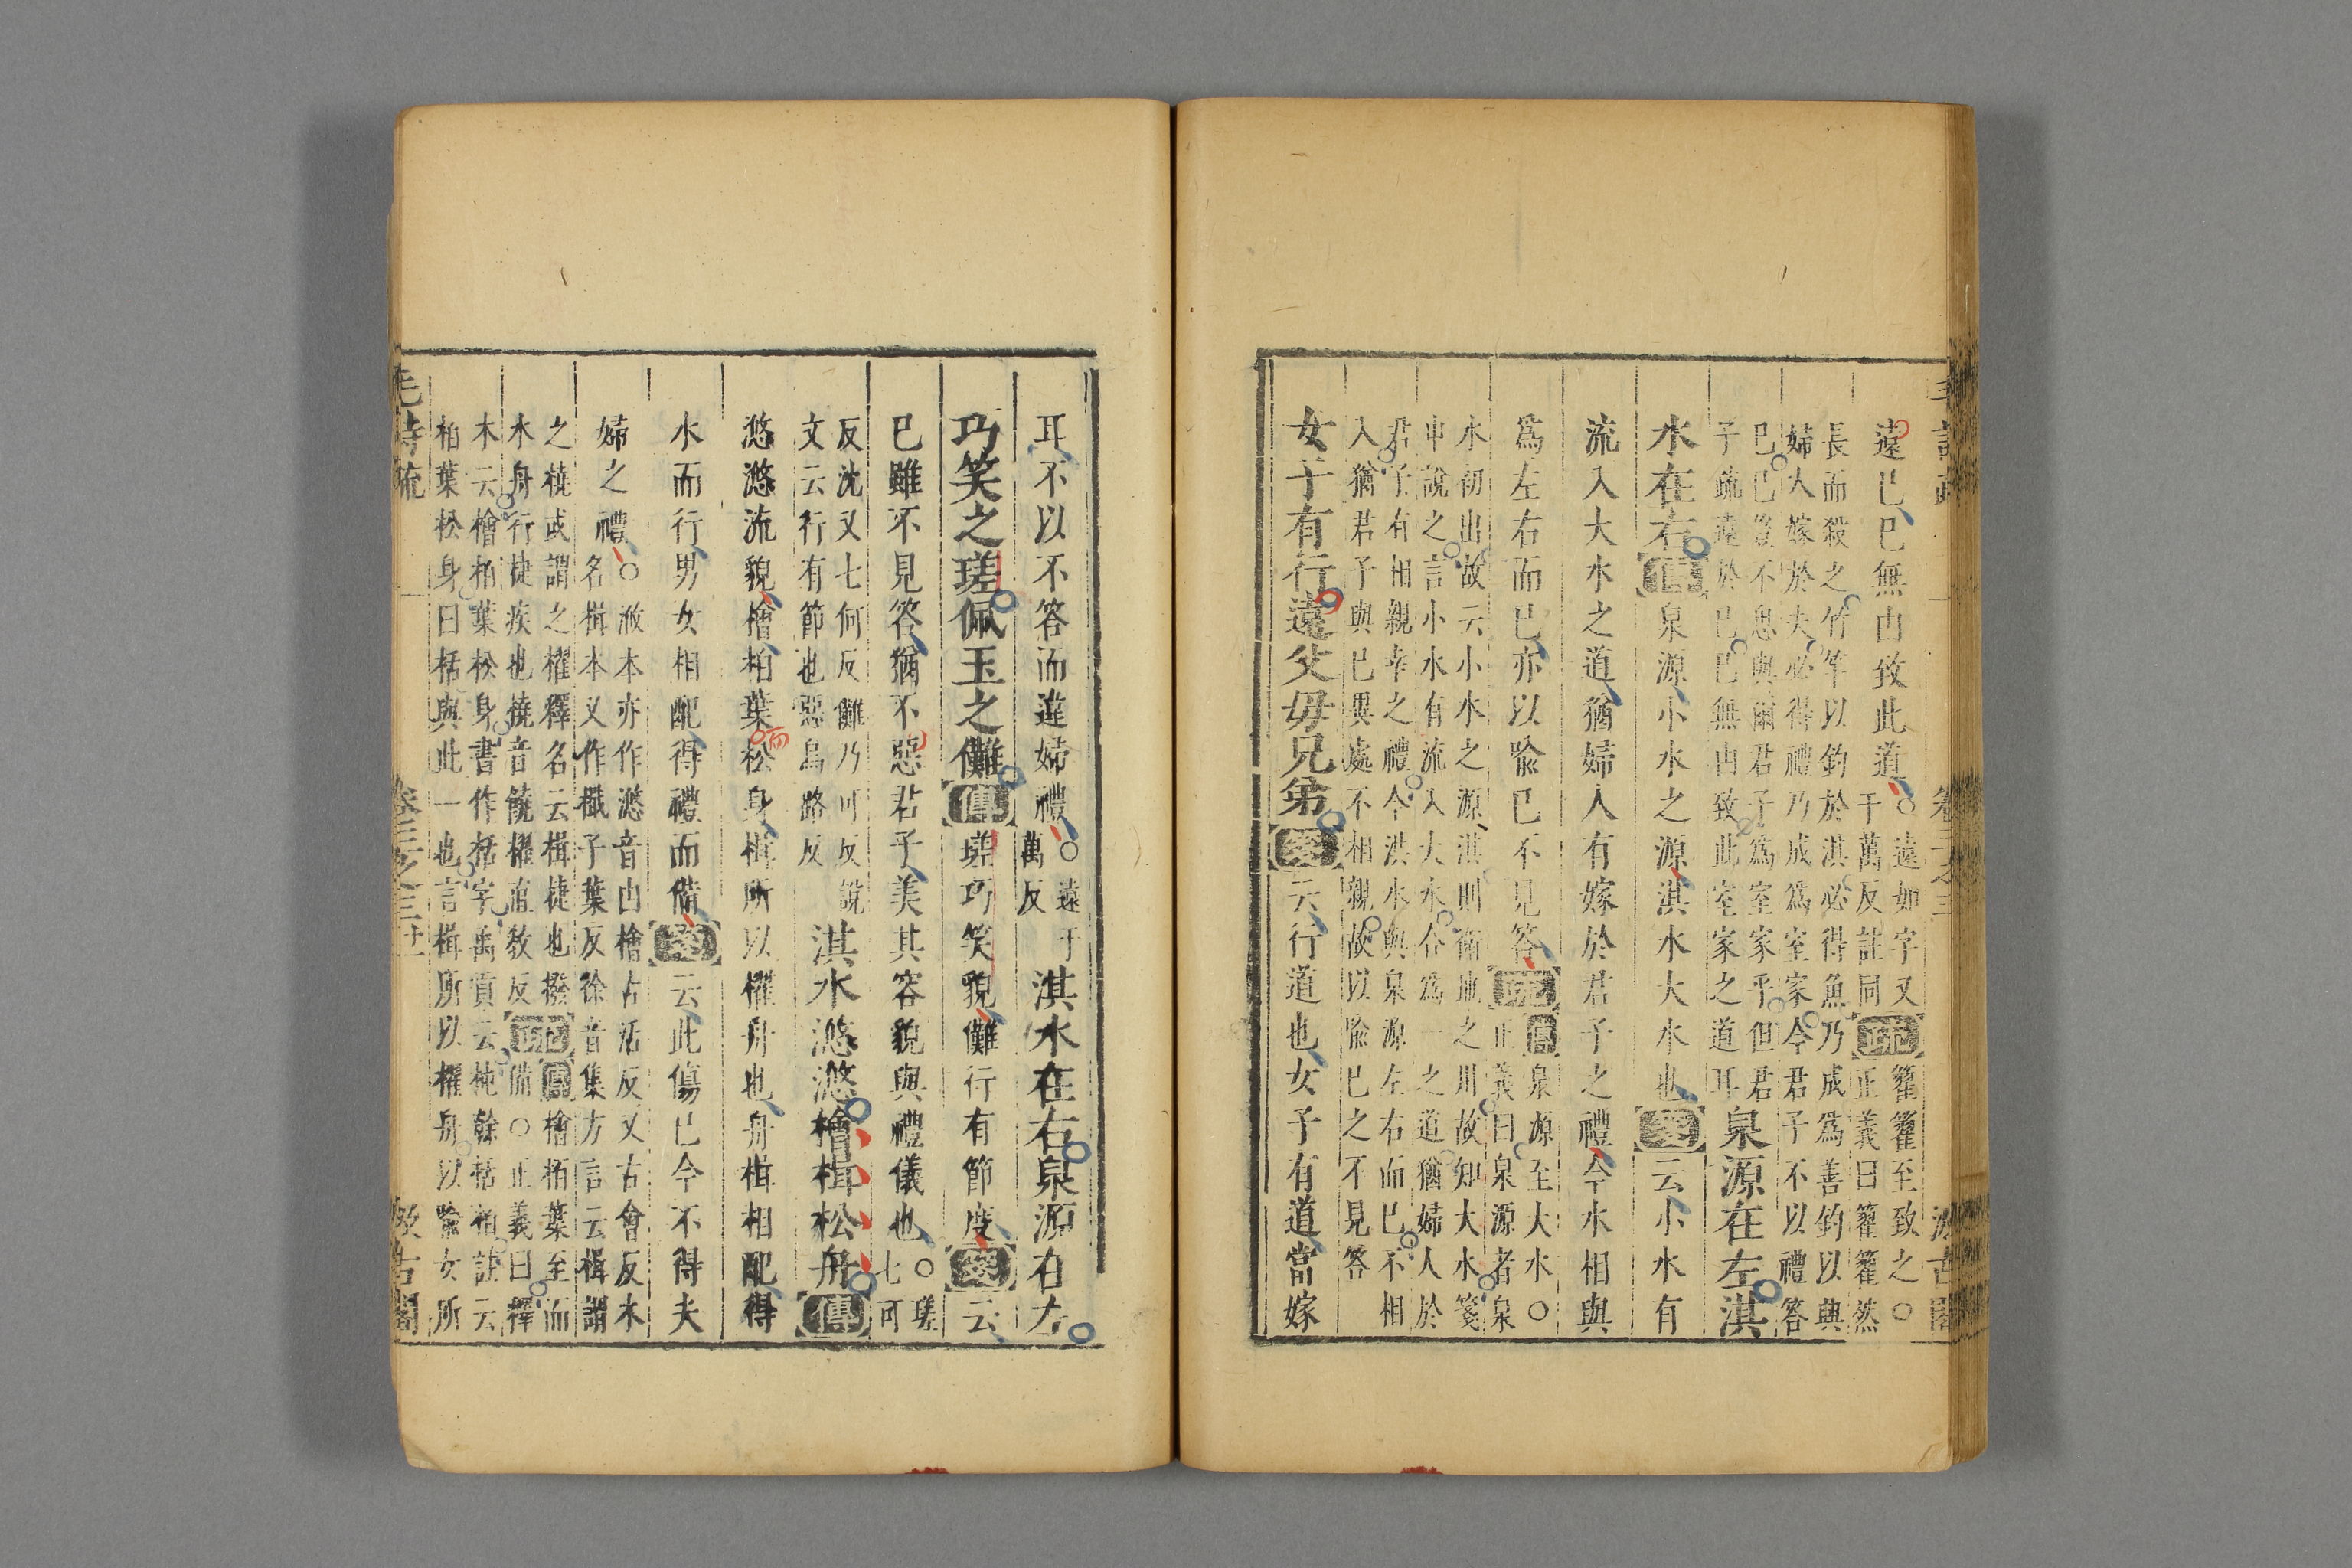 遠巳巳無由致此道○遠如字又
于萬反註同正疏籊籊至致之○
正義曰籊籊然
長而殺之竹竿以釣於淇必得魚乃成爲善釣以興
婦人嫁於夫必得禮乃成爲室家今君子不以禮答
巳巳豈不思與爾君子爲室家乎但君
子疏遠於巳巳無由致此室家之道耳泉源在左淇
水在右傳泉源小水之源淇水大水也箋云小水有
流入大水之道猶婦人有嫁於君子之禮今水相與
爲左右而巳亦以喩巳不見答正疏傳泉源至大水○
正義曰泉源者泉
水初出故云小水之源淇則衛地之川故知大水箋
申說之言小水有流入大水合爲一之道猶婦人於
君子有相親幸之禮今淇水與泉源左右而巳不相
入猶君子與巳異處不相親故以喩巳之不見答
女子有行遠父母兄弟箋云行道也女子有道當嫁
耳不以不答而違婦禮○遠于
萬反淇水在右泉源在左
巧笑之瑳佩玉之儺傳瑳巧笑貌儺行有節度箋云
巳雖不見答猶不惡君子美其容貌與禮儀也○瑳
七可
反沈又七何反儺乃可反說
文云行有節也惡烏路反淇水滺滺檜楫松舟傳
滺滺流貌檜柏葉松身楫所以櫂舟也舟楫相配得
而
水而行男女相配得禮而備箋云此傷巳今不得夫
婦之禮○浟本亦作滺音由檜古活反又古會反木
名楫本又作檝子葉反徐音集方言云楫謂
之橈或謂之櫂釋名云楫捷也撥
水舟行捷疾也橈音饒櫂直敎反正疏傳檜柏葉至而
備○正義曰釋
木云檜柏葉松身書作栝字禹貢云杶榦栝柏註云
柏葉松身曰栝與此一也言楫所以櫂舟以喩女所
毛詩疏 卷三之三 十一 汲古閣